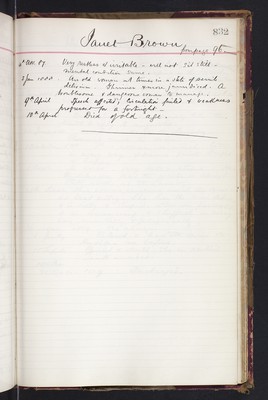 832
Janet Brown
from page 96.
Very restless & irritable - will not sit still -
mental condition same.
2 Jan 1888 An old woman at times in a state of senile
delirium. Thinner & more jaundiced. A
troublesome & dangerous woman to manage.
9th April Speech affected, circulation failed & weakness
progressed for a fortnight.
10th April Died of old age.